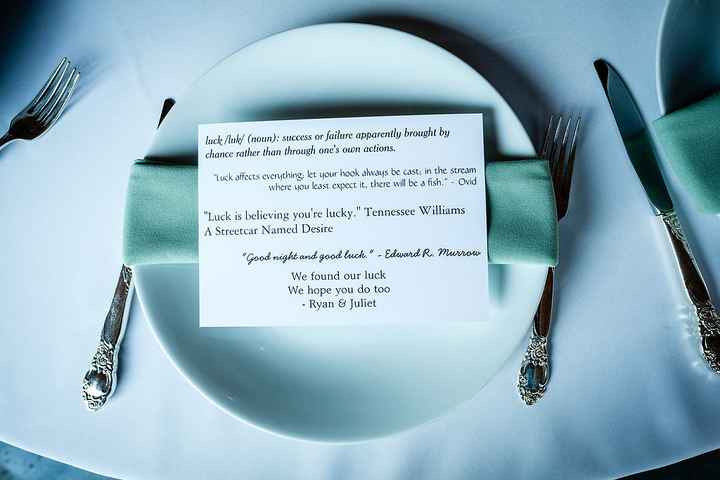 luck /luk/ (noun): success or failure apparently brought by
chance rather than through one's own actions.
"Luck affects everything; let your hook always be cast; in the stream
where you least expect it, there will be a fish." - Ovid
"Luck is believing you're lucky." Tennessee Williams
A Streetcar Named Desire
"Good night and good luck." - Edward R. Murrow
We found our luck
We hope you do too
- Ryan & Juliet